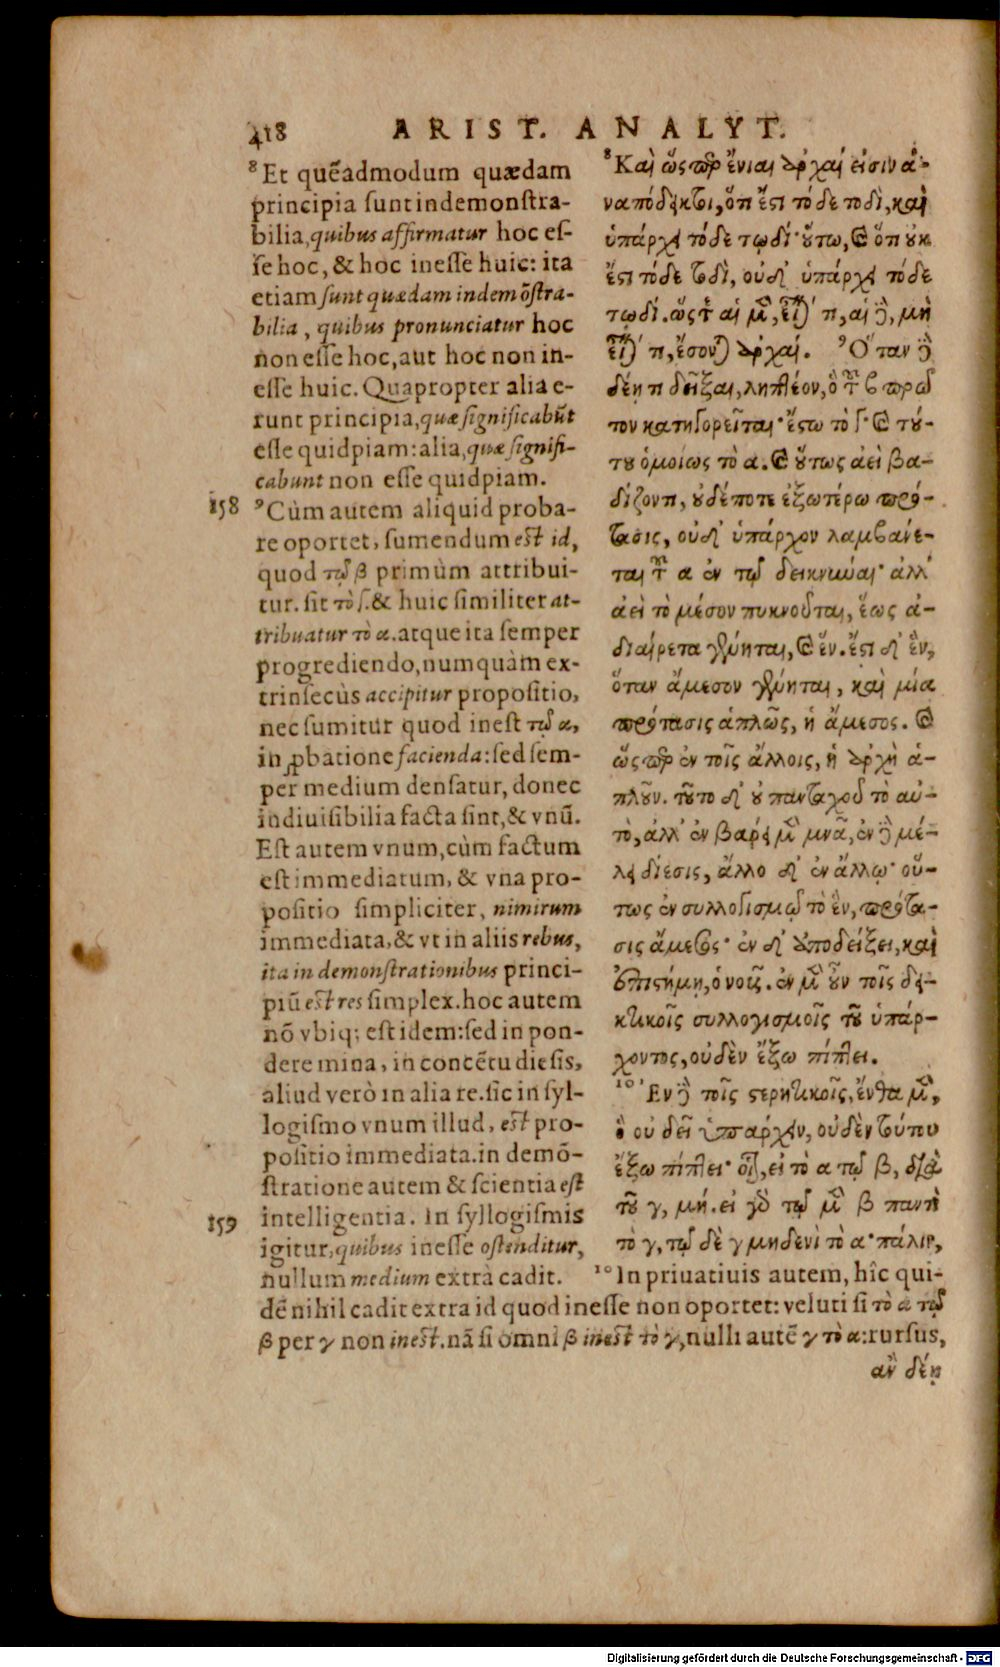 418 ARIST. ANALYT.
⁸Et quẽadmodum quædam
principia sunt indemonstra-
bilia, quibus affirmatur hoc es-
se hoc, & hoc inesse huic: ita
etiam sunt quædam indemõstra-
bilia, quibus pronunciatur hoc
non esse hoc, aut hoc non in-
esse huic. Quapropter alia e-
runt principia, quæ significabũt
esse quidpiam: alia, quæ signifi-
cabunt non esse quidpiam.
158 ⁹Cùm autem aliquid proba-
re oportet, sumendum est id,
quod τῷ β primùm attribui-
tur. sit τὸ γ. & huic similiter at-
tribuatur τὸ α. atque ita semper
progrediendo, numquàm ex-
trinsecùs accipitur propositio,
nec sumitur quod inest τῷ α,
in ꝓbatione facienda: sed sem-
per medium densatur, donec
indiuisibilia facta sint, & vnũ.
Est autem vnum, cùm factum
est immediatum, & vna pro-
positio simpliciter, nimirum
immediata, & vt in aliis rebus,
ita in demonstrationibus princi-
piũ est res simplex. hoc autem
nõ vbiq; est idem: sed in pon-
dere mina, in concẽtu diesis,
aliud verò in alia re. sic in syl-
logismo vnum illud, est pro-
positio immediata. in demõ-
stratione autem & scientia est
159 intelligentia. In syllogismis
igitur, quibus inesse ostenditur,
nullum medium extrà cadit. ¹⁰In priuatiuis autem, hîc qui-
dẽ nihil cadit extra id quod inesse non oportet: veluti si τὸ α τῷ
β per γ non inest. nã si omni β inest τὸ γ, nulli autẽ γ τὸ α: rursus,
⁸Καὶ ὥσπερ ἔνιαι ἀρχαί εἰσιν ἀ-
ναπόδεικτοι, ὅτι ἔστι τόδε τοδὶ, καὶ
ὑπάρχει τόδε τῳδί· οὕτω, καὶ ὅτι οὐκ
ἔστι τόδε τοδὶ, οὐδ' ὑπάρχει τόδε
τῳδί. ὥστε αἱ μὲν, εἶναί τι, αἱ δὲ, μὴ
εἶναί τι, ἔσονται ἀρχαί. ⁹Ὅταν δὲ
δέῃ τι δεῖξαι, ληπτέον, ὃ τοῦ β πρῶ
τον κατηγορεῖται· ἔστω τὸ γ· καὶ τού-
του ὁμοίως τὸ α. καὶ οὕτως ἀεὶ βα-
δίζοντι, οὐδέποτε ἐξωτέρω πρό-
τασις, οὐδ' ὑπάρχον λαμβάνε-
ται τοῦ α ἐν τῷ δεικνύναι· ἀλλ'
ἀεὶ τὸ μέσον πυκνοῦται, ἕως ἀ-
διαίρετα γένηται, καὶ ἕν. ἔστι δ' ἓν,
ὅταν ἄμεσον γένηται, καὶ μία
πρότασις ἁπλῶς, ἡ ἄμεσος. καὶ
ὥσπερ ἐν τοῖς ἄλλοις, ἡ ἀρχὴ ἁ-
πλοῦν. τοῦτο δ' οὐ πανταχοῦ τὸ αὐ-
τὸ, ἀλλ' ἐν βάρει μὲν μνᾶ, ἐν δὲ μέ-
λει δίεσις, ἄλλο δ' ἐν ἄλλῳ· οὕ-
τως ἐν συλλογισμῷ τὸ ἓν, πρότα-
σις ἄμεσος· ἐν δ' ἀποδείξει, καὶ
ἐπιστήμῃ, ὁ νοῦς. ἐν μὲν οὖν τοῖς δει-
κτικοῖς συλλογισμοῖς τοῦ ὑπάρ-
χοντος, οὐδὲν ἔξω πίπτει.
¹⁰Ἐν δὲ τοῖς στερητικοῖς, ἔνθα μὲν,
ὃ οὐ δεῖ ὑπάρχειν, οὐδὲν τούτου
ἔξω πίπτει· οἷον, εἰ τὸ α τῷ β, διὰ
τοῦ γ, μή. εἰ γὰρ τῷ μὲν β παντὶ
τὸ γ, τῷ δὲ γ μηδενὶ τὸ α· πάλιν,
ἂν δέῃ
Digitalisierung gefördert durch die Deutsche Forschungsgemeinschaft - DFG